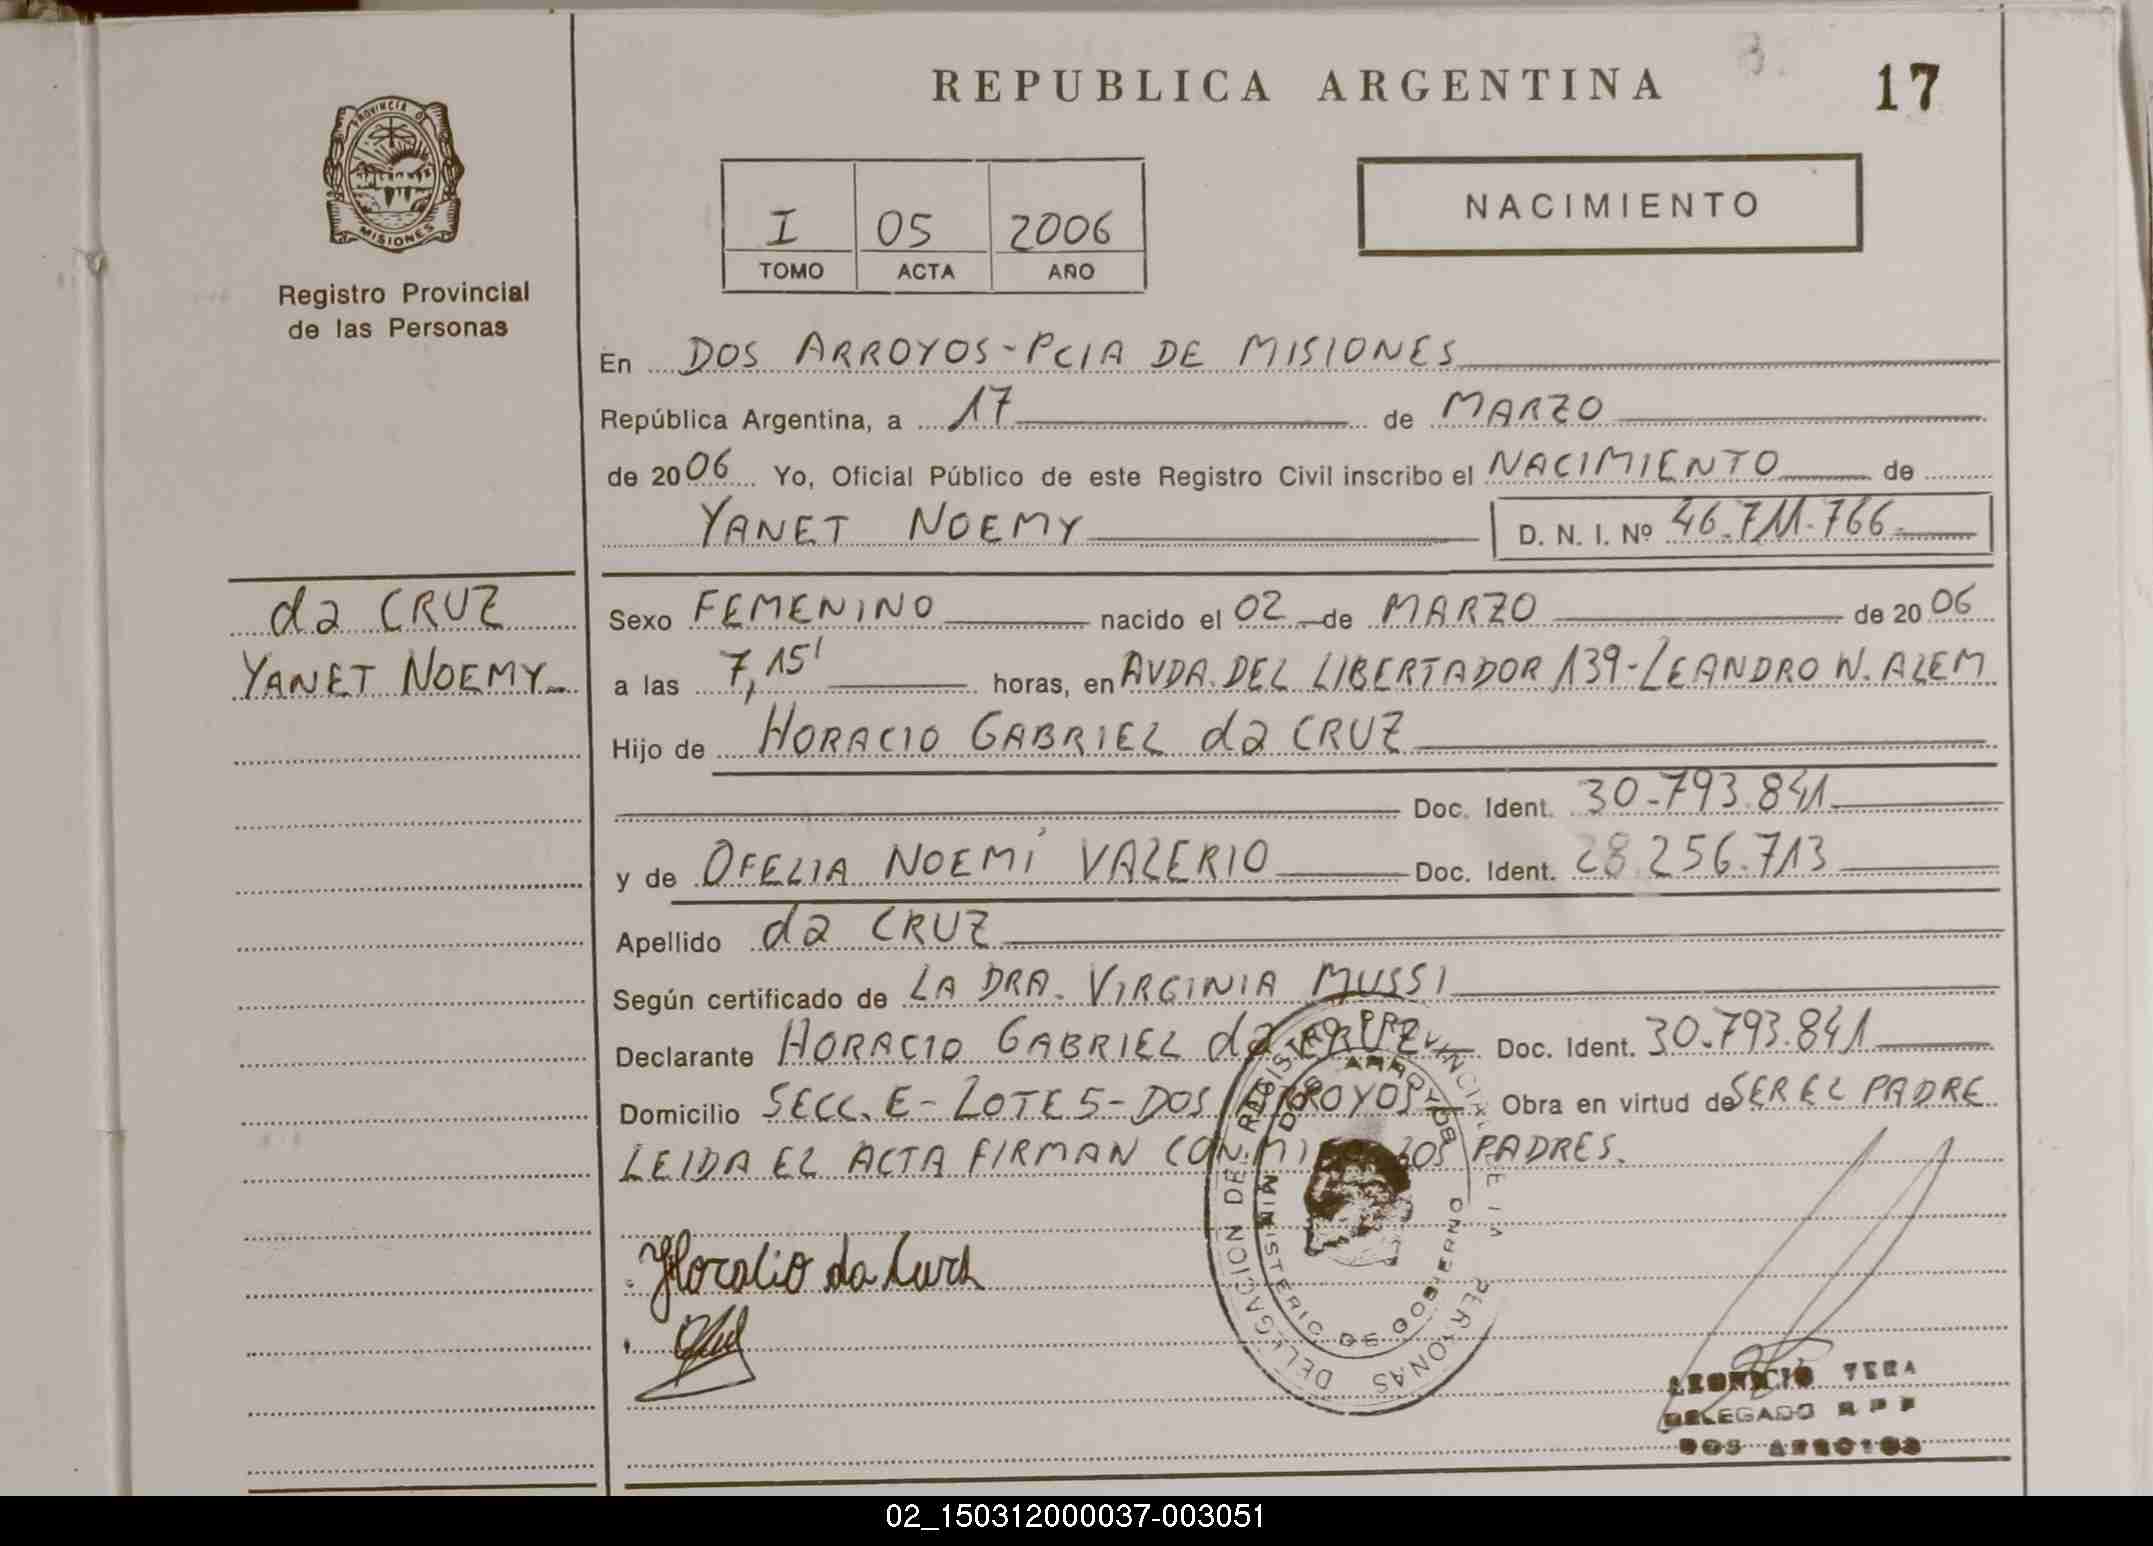 REPUBLICA ARGENTINA
17
PROVINCIA DE
MISIONES
Registro Provincial
de las Personas
I 05 2006
TOMO ACTA AÑO
NACIMIENTO
En DOS ARROYOS - PCIA DE MISIONES
República Argentina, a 17 de MARZO
de 2006 Yo, Oficial Público de este Registro Civil inscribo el NACIMIENTO de
YANET NOEMY D. N. I. Nº 46.711.766
da CRUZ
YANET NOEMY
Sexo FEMENINO nacido el 02 de MARZO de 2006
a las 7,15' horas, en AVDA. DEL LIBERTADOR 139 - LEANDRO N. ALEM
Hijo de HORACIO GABRIEL da CRUZ
Doc. Ident. 30.793.841
y de OFELIA NOEMÍ VALERIO Doc. Ident. 28.256.713
Apellido da CRUZ
Según certificado de LA DRA. VIRGINIA MUSSI
Declarante HORACIO GABRIEL da CRUZ Doc. Ident. 30.793.841
Domicilio SECC. E - LOTE 5 - DOS ARROYOS Obra en virtud de SER EL PADRE
LEIDA EL ACTA FIRMAN CONMIGO LOS PADRES.
DELEGACION DEL REGISTRO PROVINCIAL DE LAS PERSONAS
DOS ARROYOS
MINISTERIO DE GOBIERNO
Horacio da Cruz
VERA
DELEGADO R P P
DOS ARROYOS
02_150312000037-003051